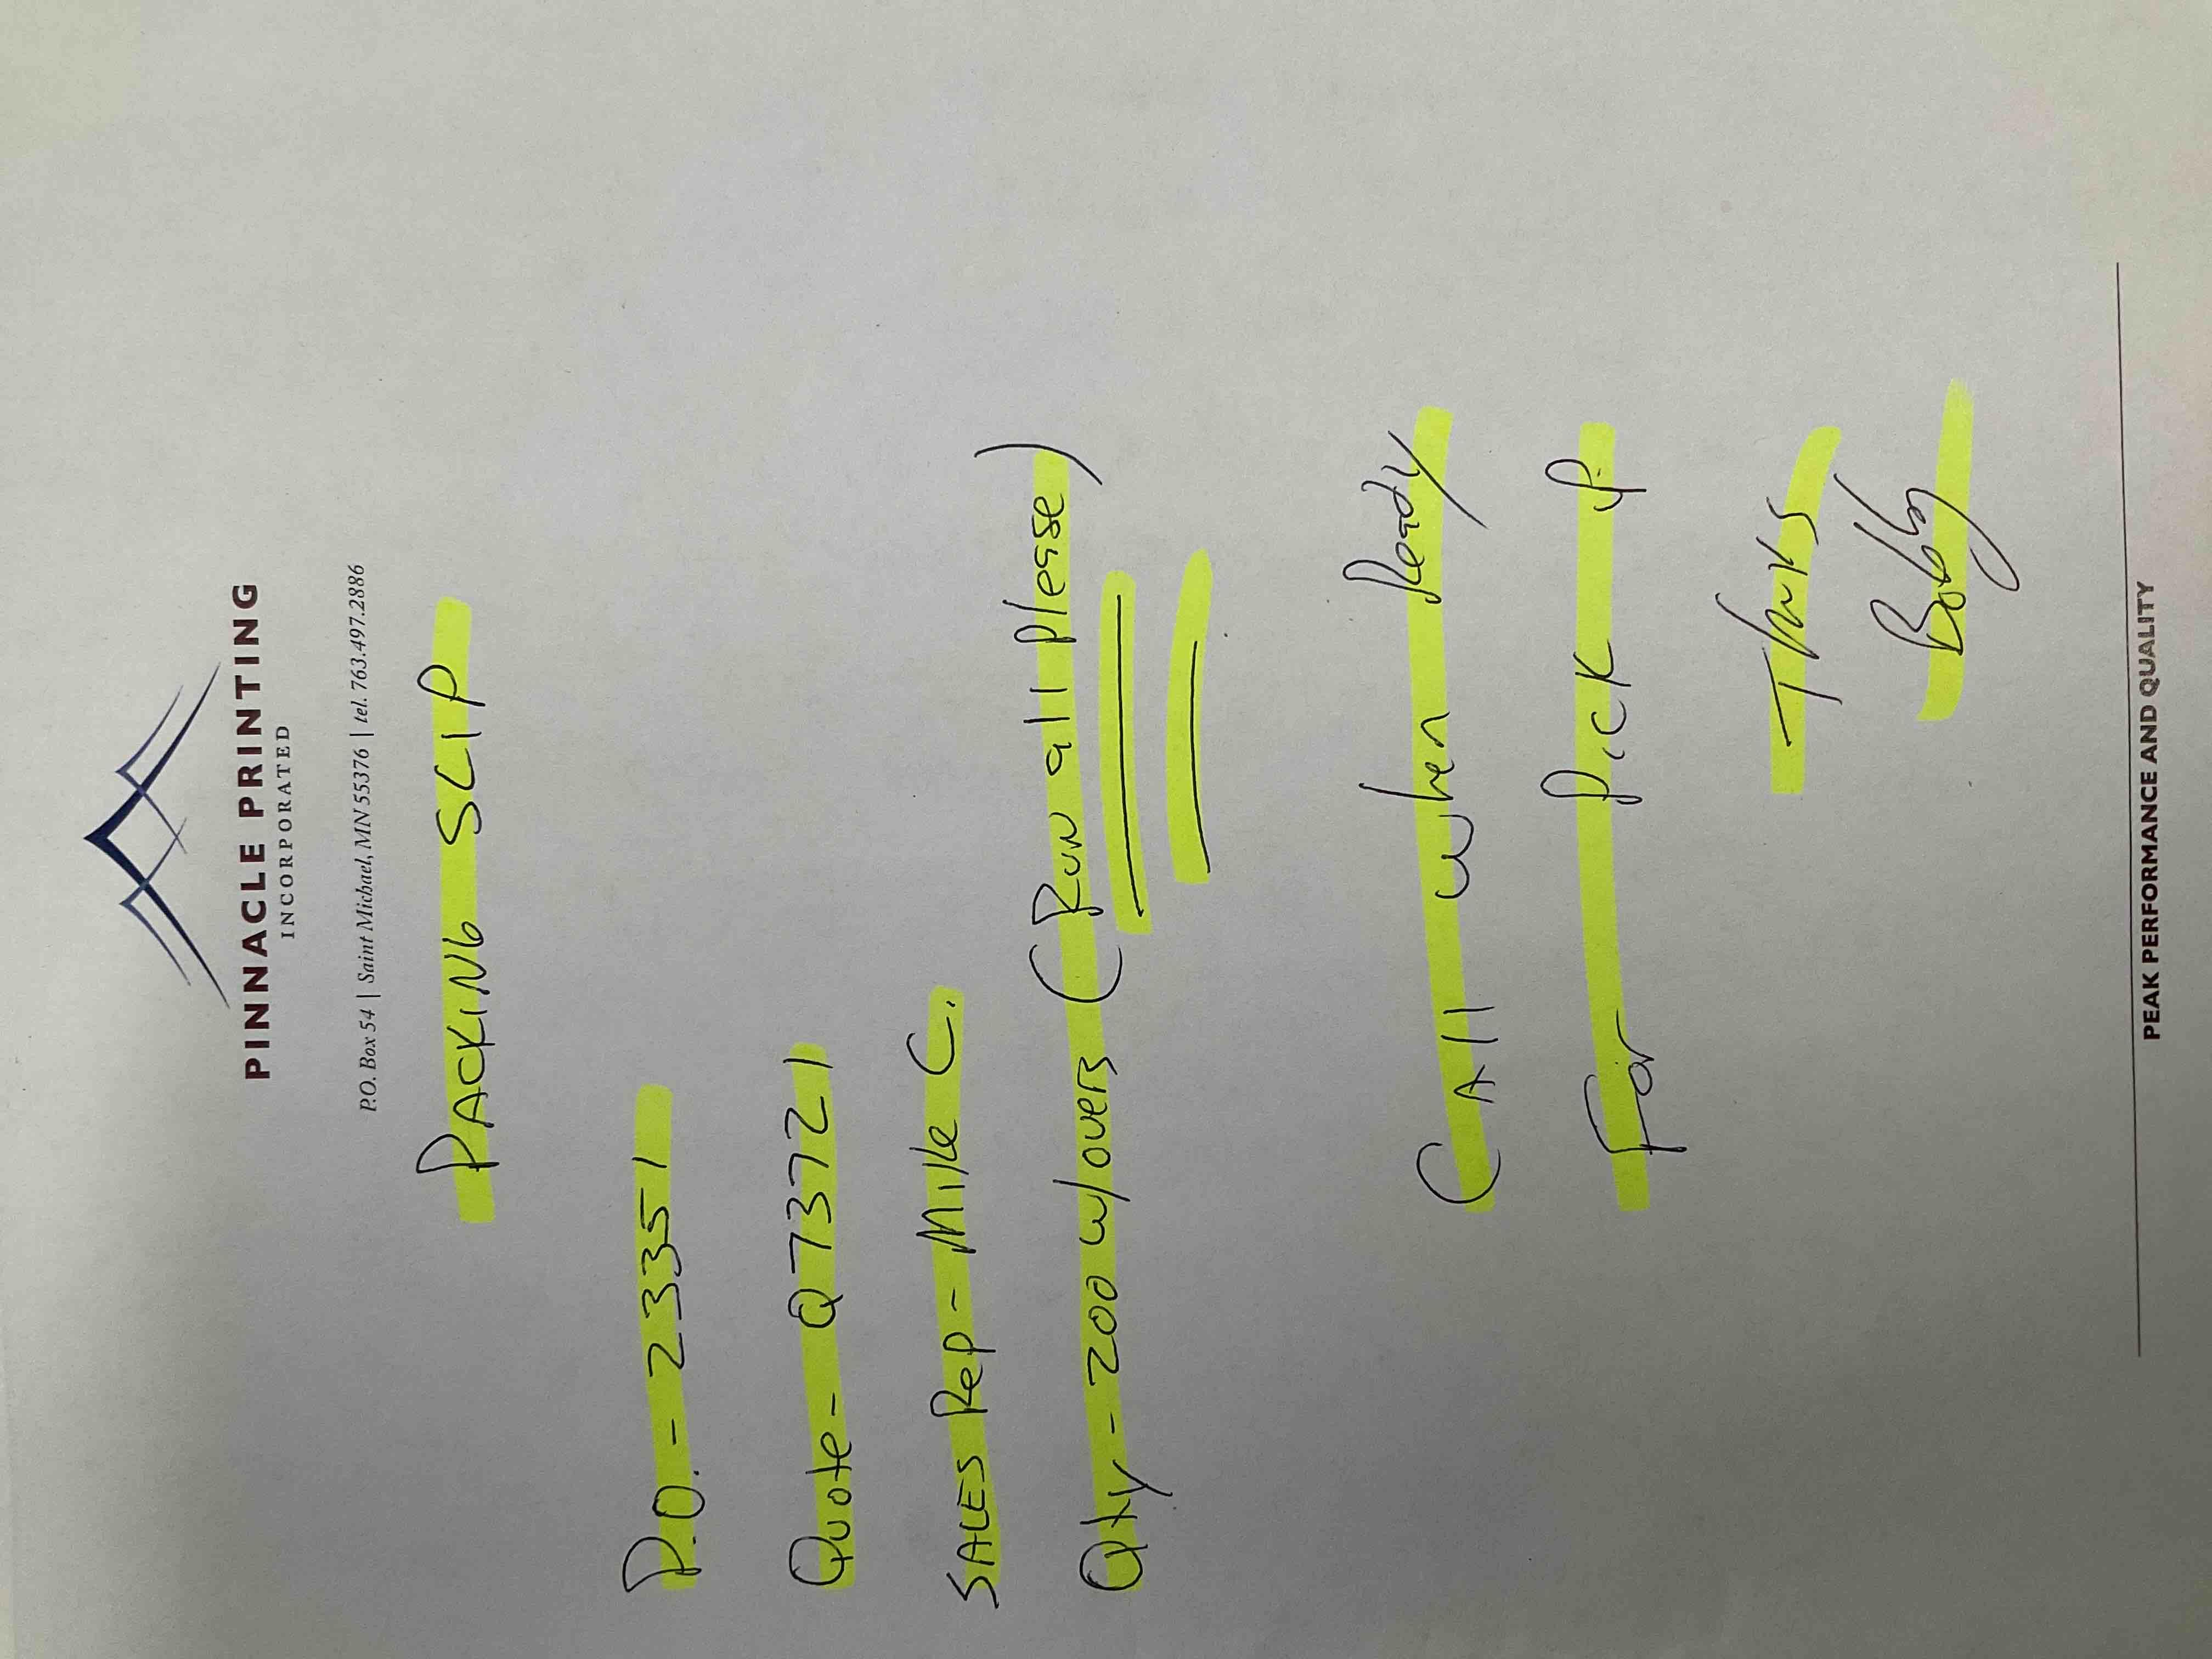 PINNACLE PRINTING
INCORPORATED
P.O. Box 54 | Saint Michael, MN 55376 | tel. 763.497.2886
PACKING SLIP
P.O. - 23351
Quote - Q73721
SALES Rep - Mike C.
Qty - 200 w/overs (Run all please)
Call when Ready
For Pick up.
Thanks
Bobby
PEAK PERFORMANCE AND QUALITY